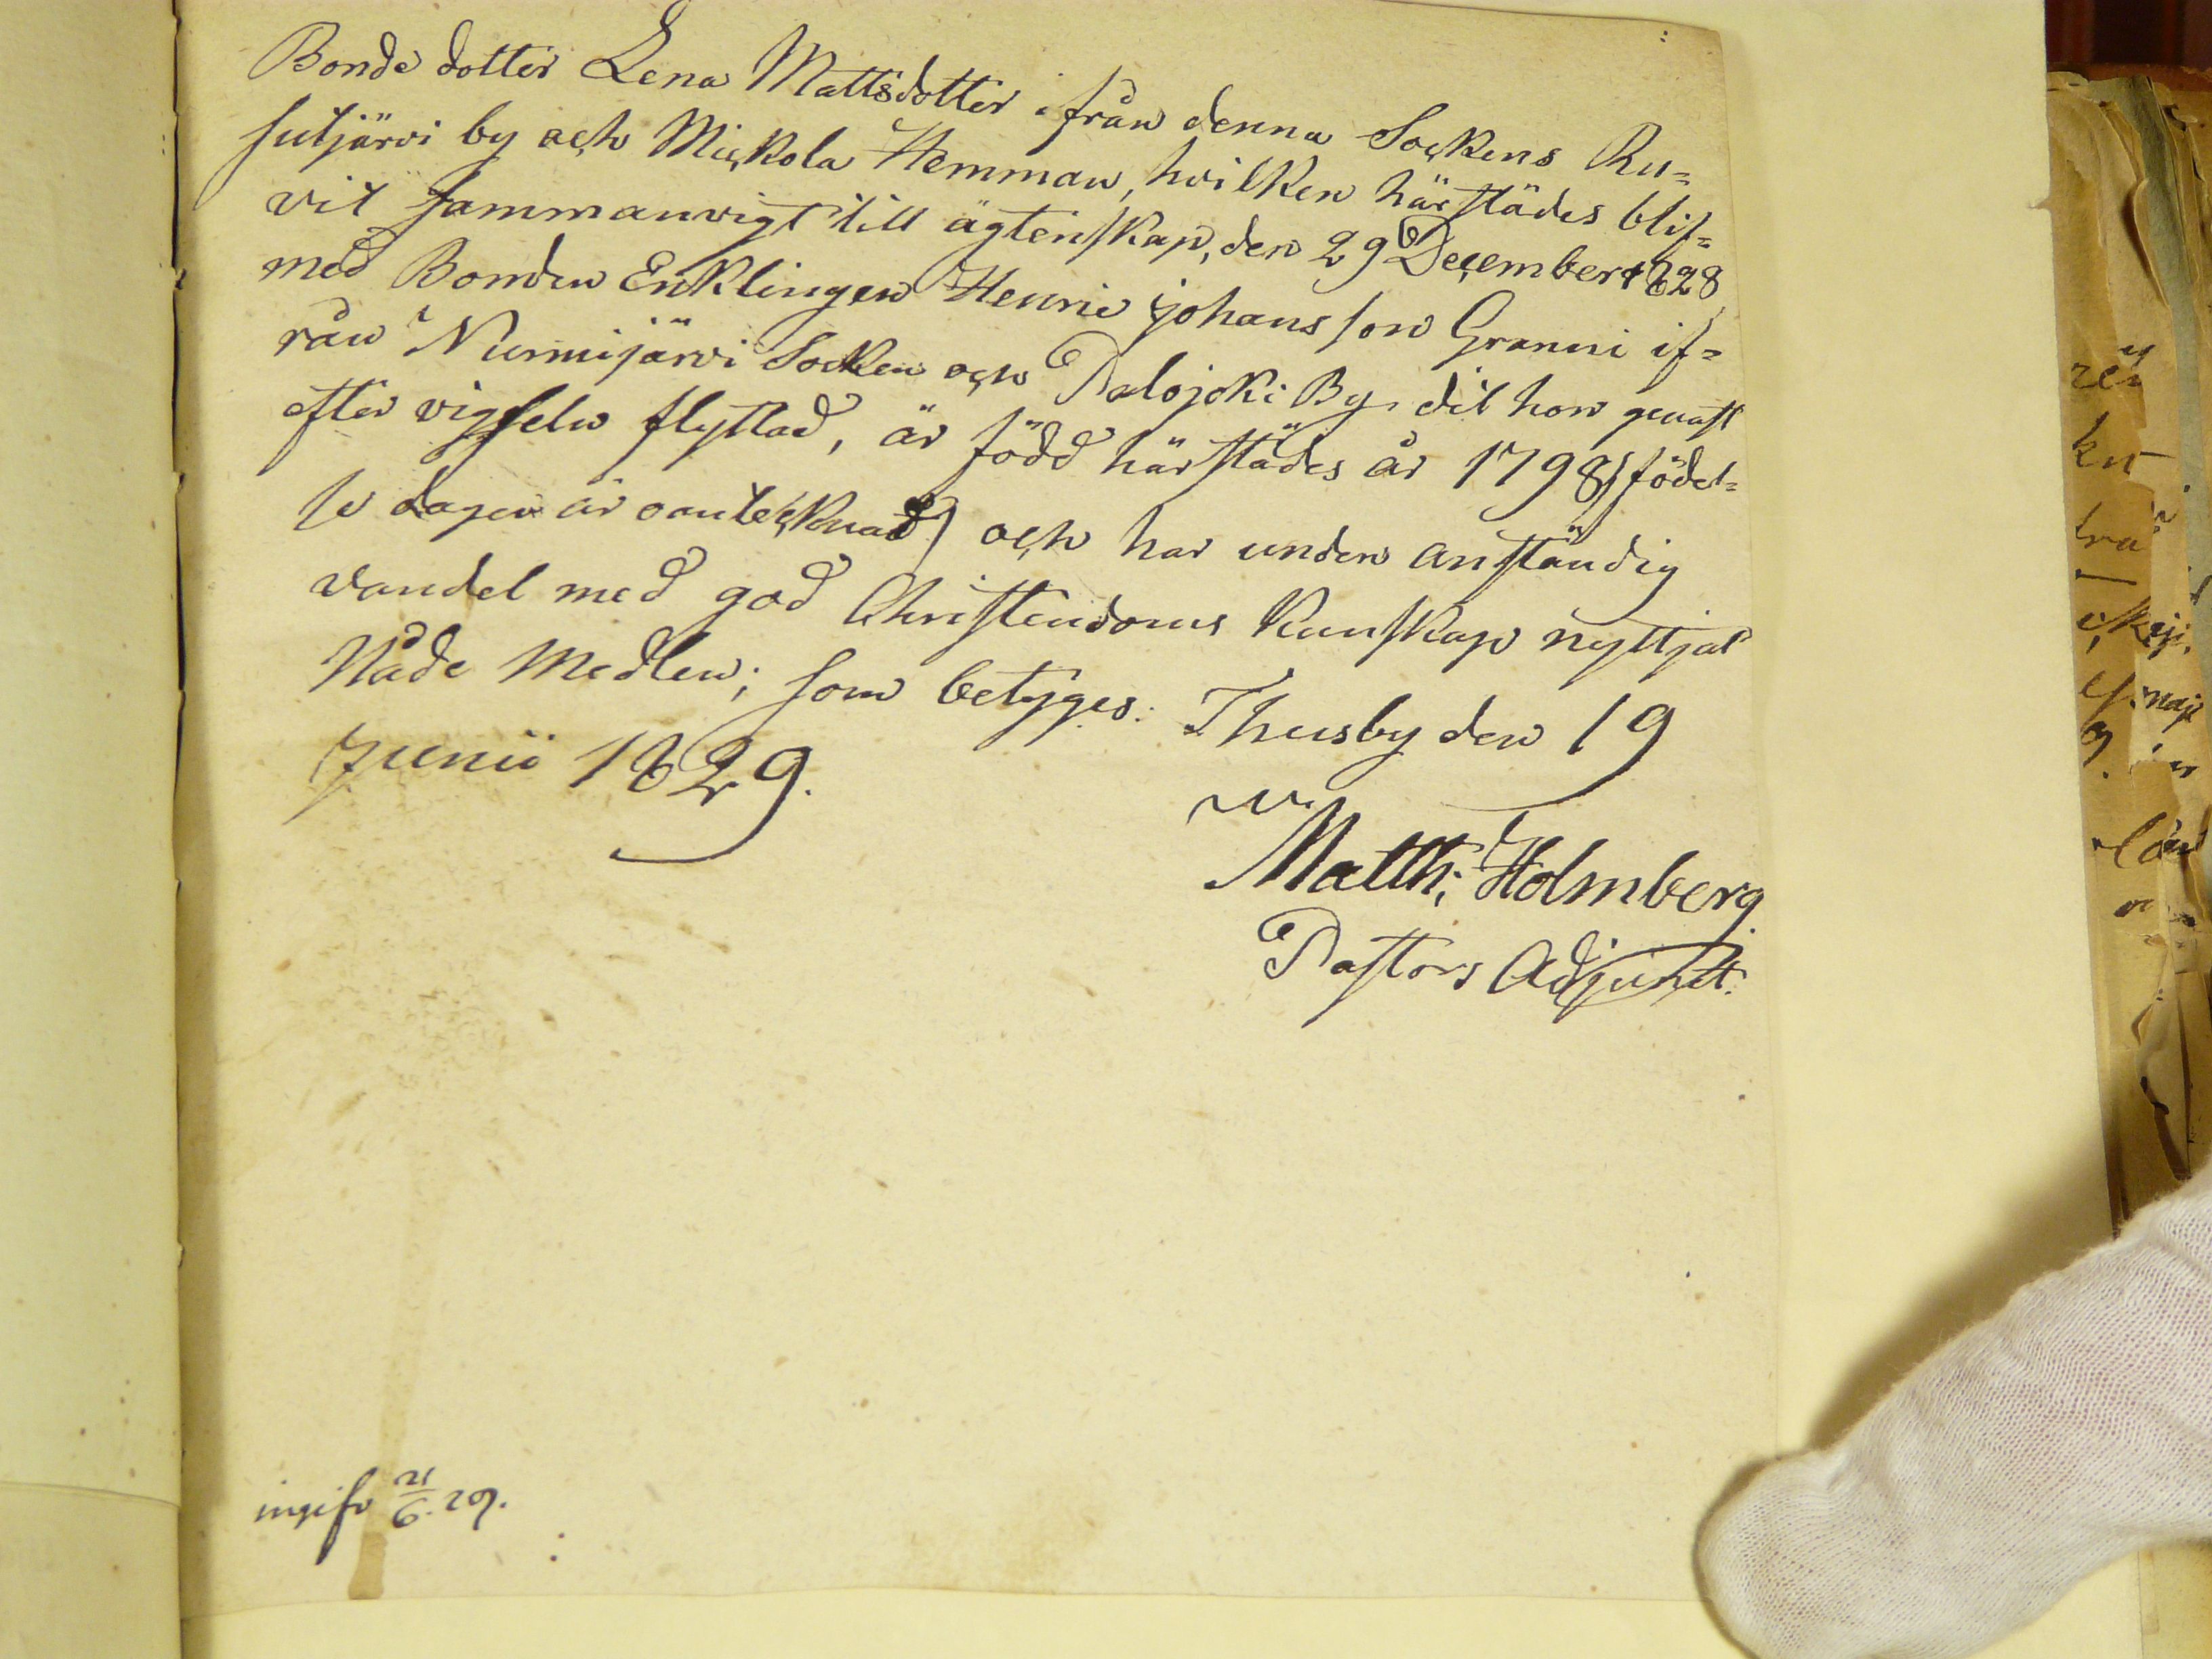 Bonde dotter Lena Mattsdotter ifrån denna Sockens Ru=
sutjärvi by och Mickola Hemman, hvilken härstädes blif=
vit sammanvigt till ägtenskap, den 29 December 1828
med Bonden Enklingen Henric Johansson Granni if=
rån Nurmijärvi Socken och Palojoki By, dit hon genast
efter vigseln flyttad, är född härstädes år 1798 (födel=
se dagen är oantecknad) och har under anständig
vandel med god Christendoms kunskap nyttjat
Nåde Medlen; som betyges. Thusby den 19
Junii 1829.
Matth: Holmberg.
Pastors Adjunct.
ingifv 21/6. 29.